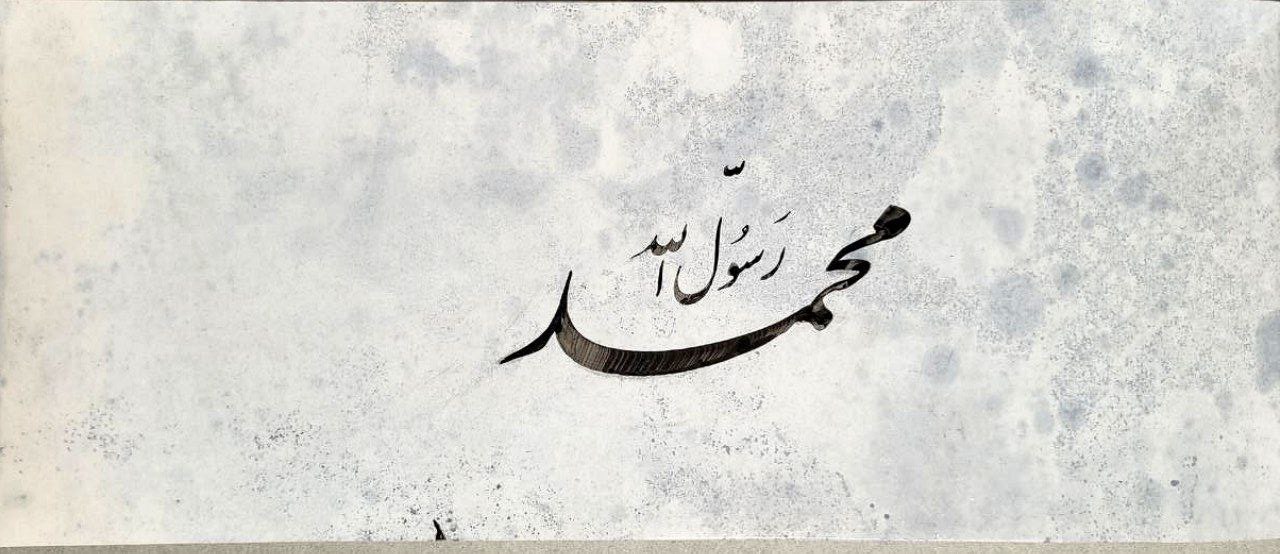 محمد
رَسُوّل الله